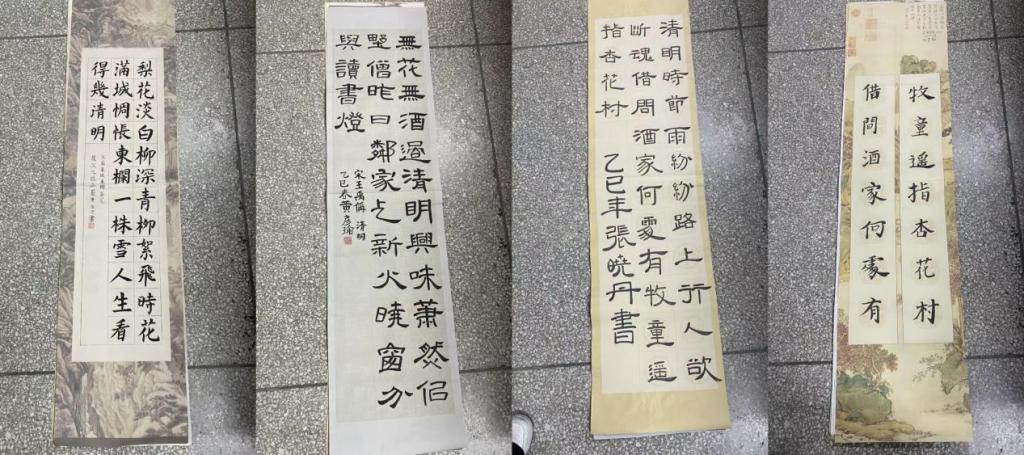 梨花淡白柳深青柳絮飛時花
滿城惆悵東欄一株雪人生看
得幾清明
無花無酒過清明興味蕭然佀
埜僧昨日鄰家乞新火曉窗分
與讀書燈
宋王禹偁 清明
乙巳春黃
清明時節雨紛紛路上行人欲
断魂借問酒家何處有牧童遥
指杏花村
乙巳年張曉丹書
牧童遥指杏花村
借問酒家何處有